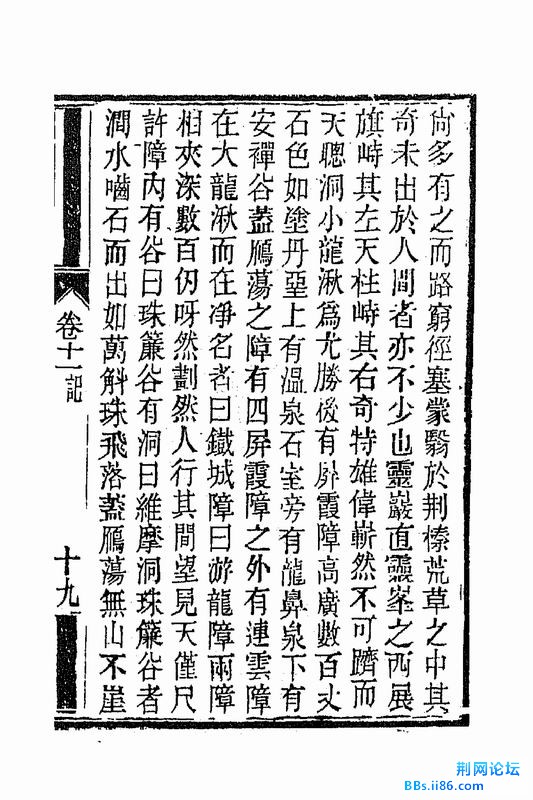 尚多有之而路窮徑塞蒙翳於荆榛荒草之中其
奇未出於人間者亦不少也靈巖直靈峯之西展
旗峙其左天柱峙其右奇特雄偉嶄然不可躋而
天聰洞小龍湫爲尤勝後有屏霞障高廣數百丈
石色如塗丹堊上有溫泉石室旁有龍鼻泉下有
安禪谷葢鴈蕩之障有四屏霞障之外有連雲障
在大龍湫而在净名者曰鐵城障曰游龍障兩障
相夾深數百仞呀然劃然人行其間望見天僅尺
許障内有谷曰珠簾谷有洞曰維摩洞珠簾谷者
澗水嚙石而出如萬斛珠飛落葢鴈蕩無山不崖
卷十一記
十九
荆网论坛
BBs.ii86.com